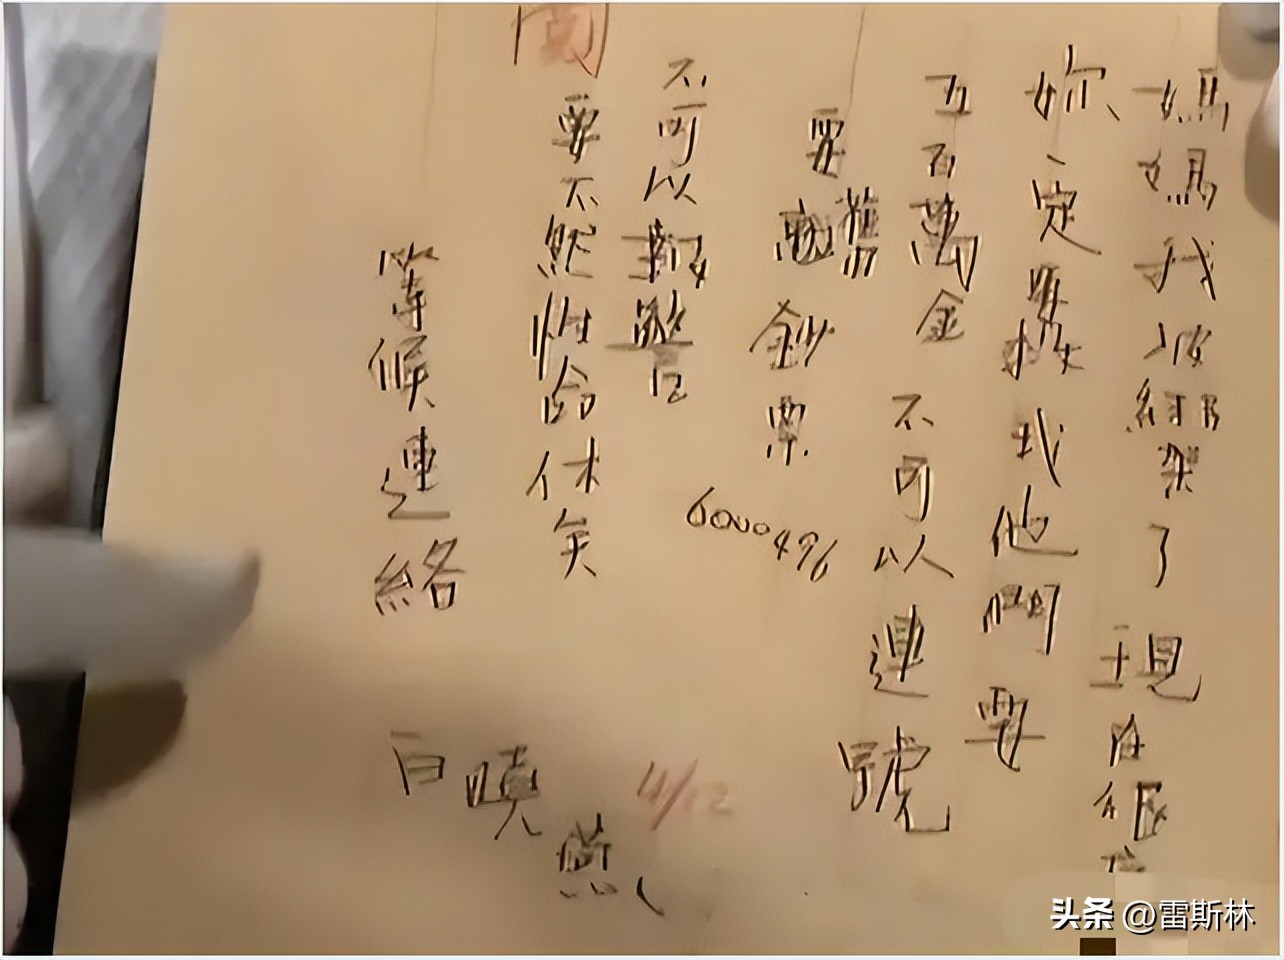 媽媽我被綁架了現在很
妳一定要救我他們要
五百萬金 不可以連號
要舊鈔票
6000496
不可以報警
要不然性命休矣
等候連絡
白曉燕
4/12
头条 @雷斯林